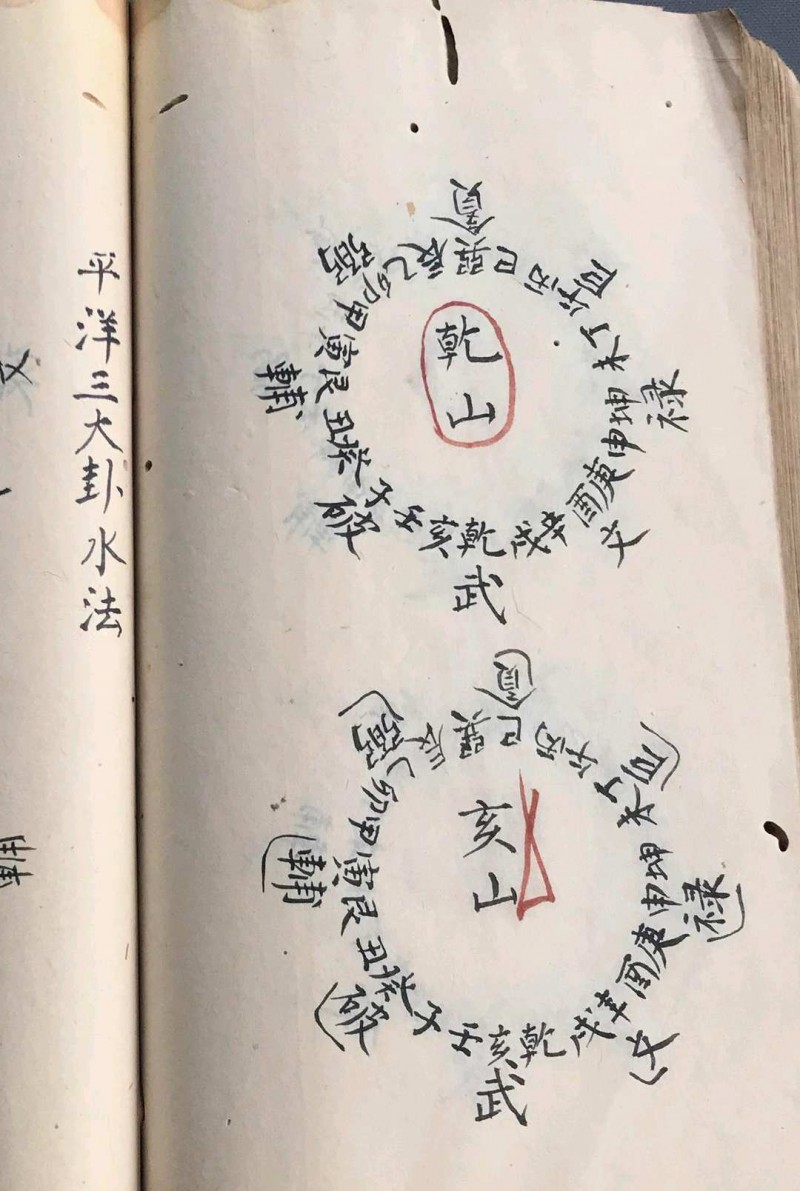 平洋三大卦水法
乾山
貪
乙辰巽巳丙午
巨
丁未坤申庚酉
禄
文
辛戌乾亥壬子
武
破
癸丑艮寅甲卯
輔
弼
亥山
貪
乙辰巽巳丙午
巨
丁未坤申庚酉
禄
文
辛戌乾亥壬子
武
破
癸丑艮寅甲卯
輔
弼
文
輔